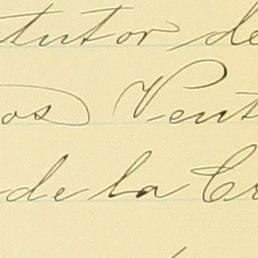 tutor de
os Vent
de la Cr